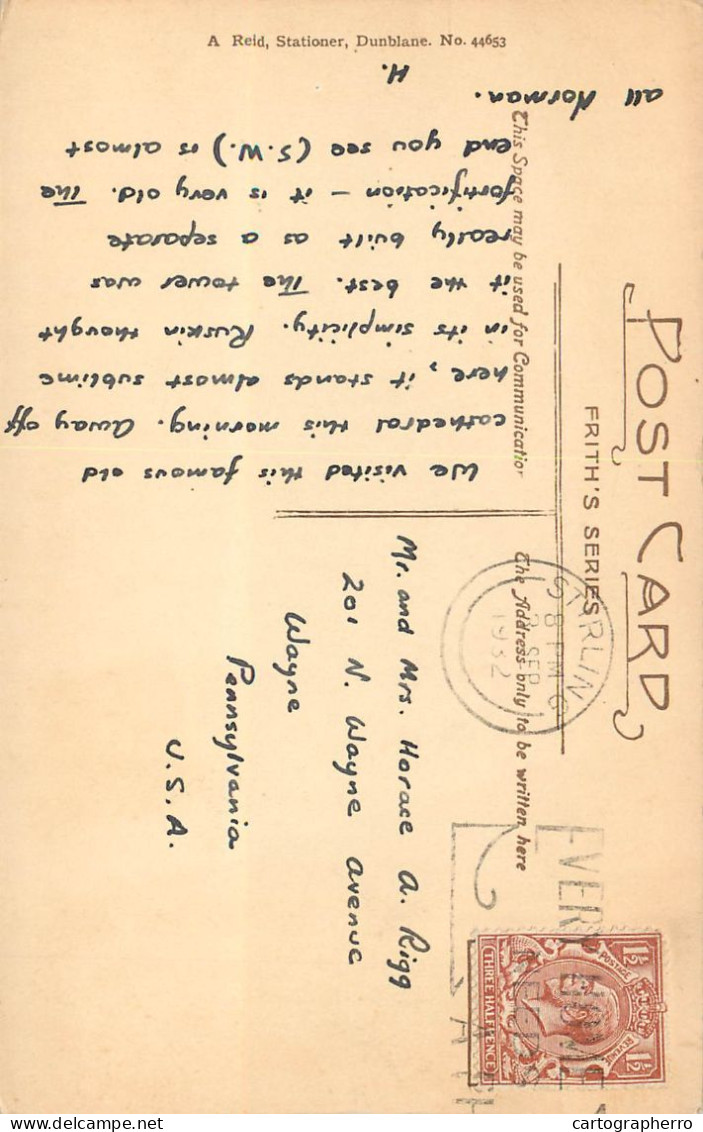 A Reid, Stationer, Dunblane. No. 44653
POST CARD
FRITH'S SERIES
This Space may be used for Communication
The Address only to be written here
We visited this famous old
cathedral this morning. Away off
here, it stands almost sublime
in its simplicity. Ruskin thought
it the best. The tower was
really built as a separate
fortification – it is very old. The
end you see (S.W.) is almost
all Norman.
H.
Mr. and Mrs. Horace A. Rigg
201 N. Wayne Avenue
Wayne
Pennsylvania
U.S.A.
STIRLING
8 PM
SEP
1932
EVERY HOME
POSTAGE
REVENUE
1½
1½
THREE HALFPENCE
cartographerro